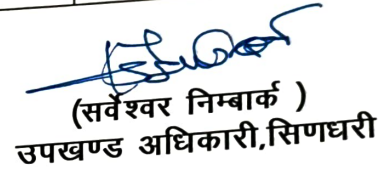 (सर्वेश्वर निम्बार्क )
उपखण्ड अधिकारी,सिणधरी